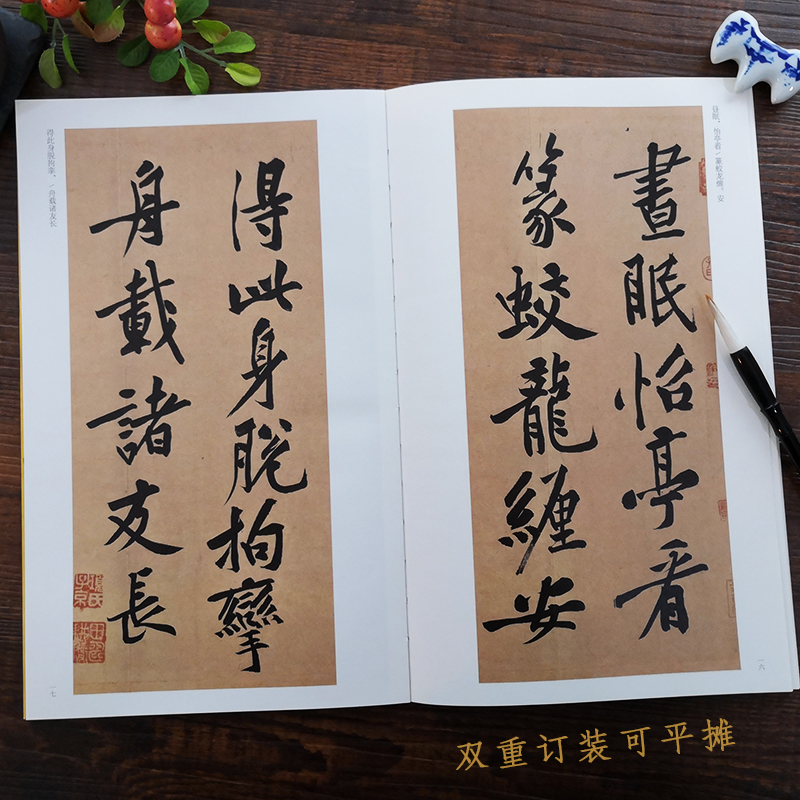 昼眠，怡亭看／篆蛟龙缠。安
晝眠怡亭看
篆蛟龍纏安
一六
得此身脫拘攣
舟載諸友長
得此身脱拘挛，／舟载诸友长
一七
双重订装可平摊